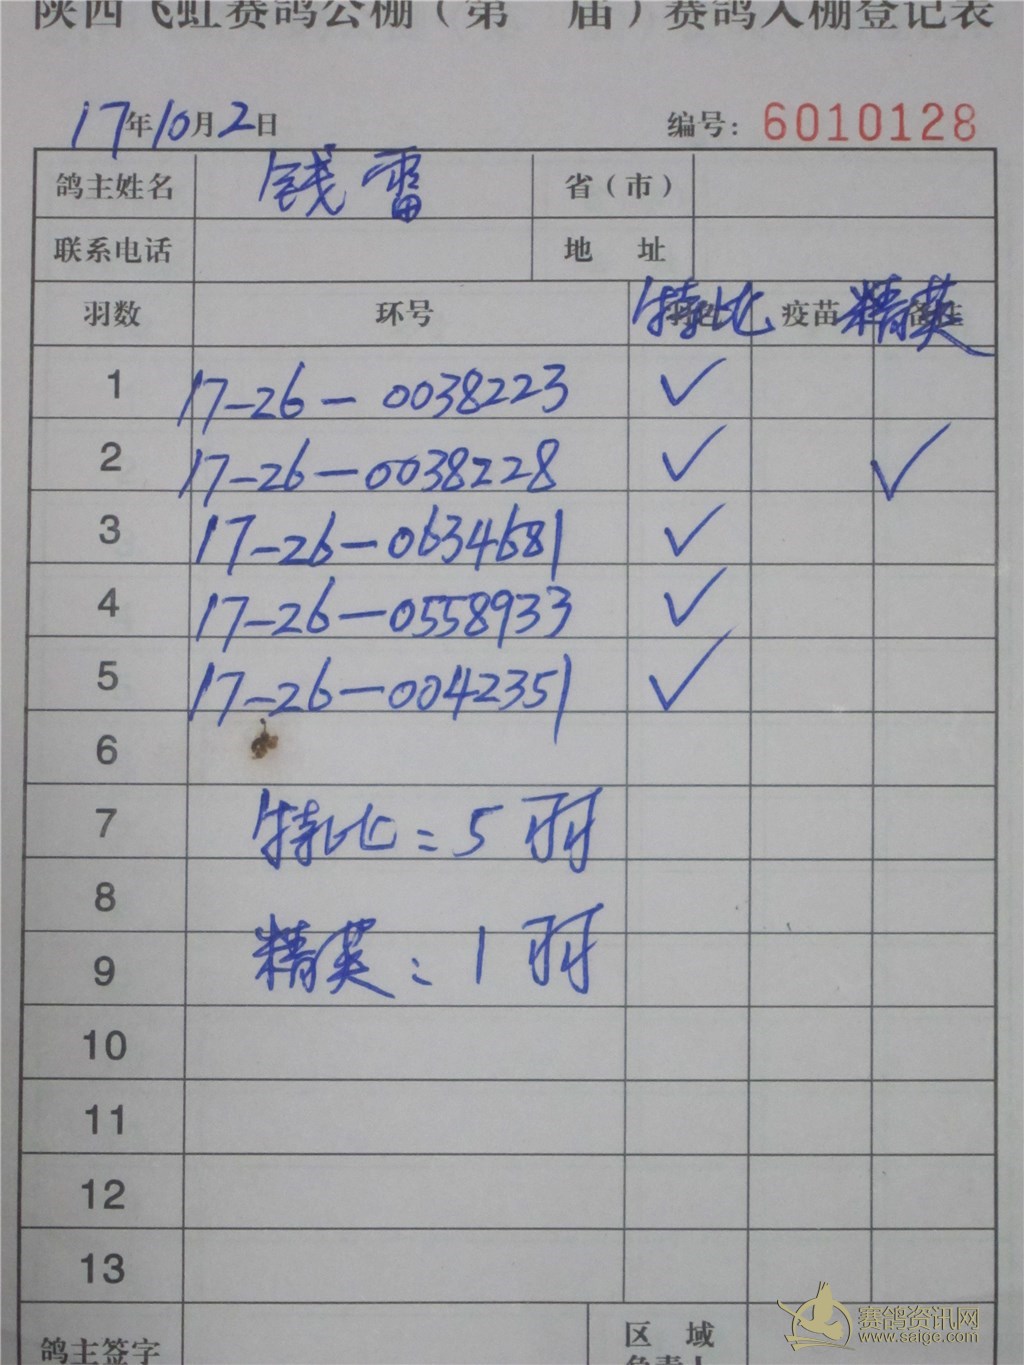 陕西飞虹赛鸽公棚（第　届）赛鸽入棚登记表
17年10月2日 编号：6010128
鸽主姓名 钱雷 省（市）
联系电话 地 址
羽数 环号 特比 疫苗 精英
1 17-26-0038223 ✓
2 17-26-0038228 ✓ ✓
3 17-26-0634681 ✓
4 17-26-0558933 ✓
5 17-26-0042351 ✓
6
7 特比：5羽
8
9 精英：1羽
10
11
12
13
鸽主签字 区 域
负责人
赛鸽资讯网
www.saigc.com